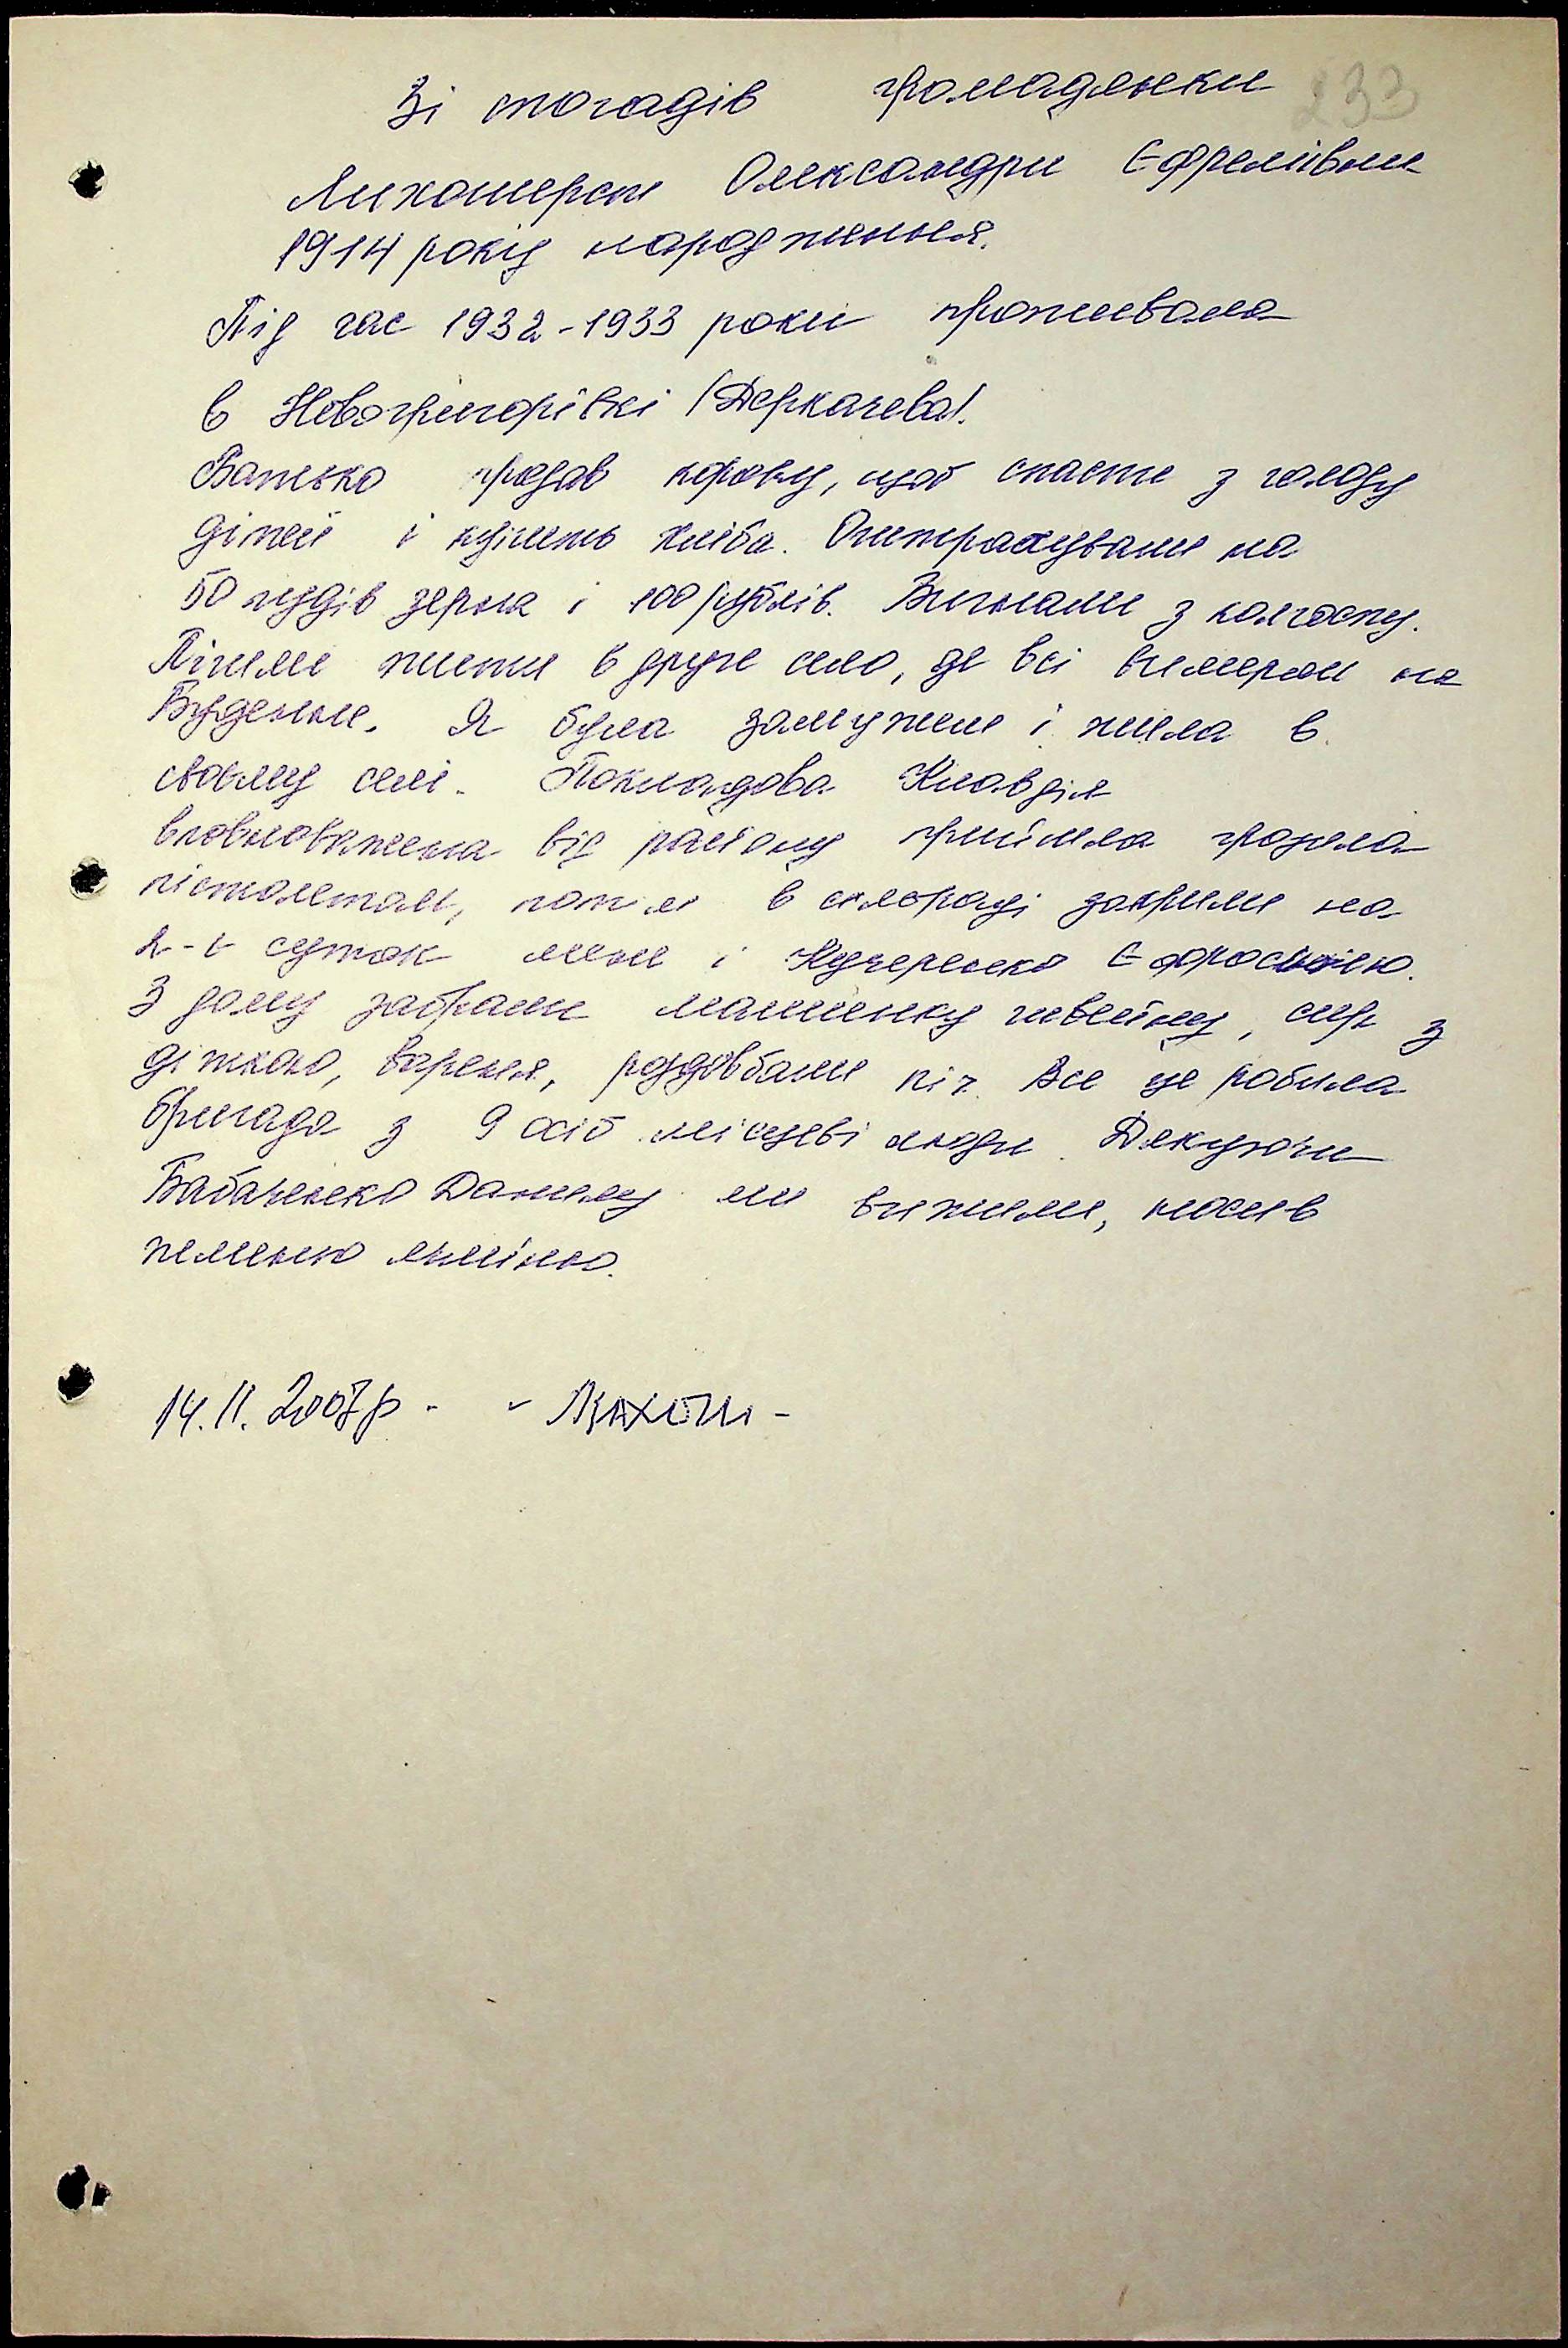 233
Зі спогадів громадянки
Лихошерст Олександри Єфремівни
1914 року народження.
Під час 1932-1933 роки проживала
в Новогригорівкі /Деркачева/.
Батько продав корову, щоб спасти з голоду
дітей і купить хліба. Оштрахували на
50 пудів зерна і 100 рублів. Вигнали з колгоспу.
Пішли жити в друге село, де всі вимерли на
Буденни. Я була замужем і жила в
своєму селі. Поклондова Клавдія
вповноважена від району прийшла грозила
пістолетом, потім в сільраді закрили на
2-є суток мене і Кучеренко Єфросинію.
З дому забрали машинку швейну, сир з
діжкою, варення, роздовбали піч. Все це робила
бригада з 9 осіб місцеві люди. Дякуючи
Бабаченко Данилу ми вижили, носив
жменю ячмінно.
14.11.2007р -